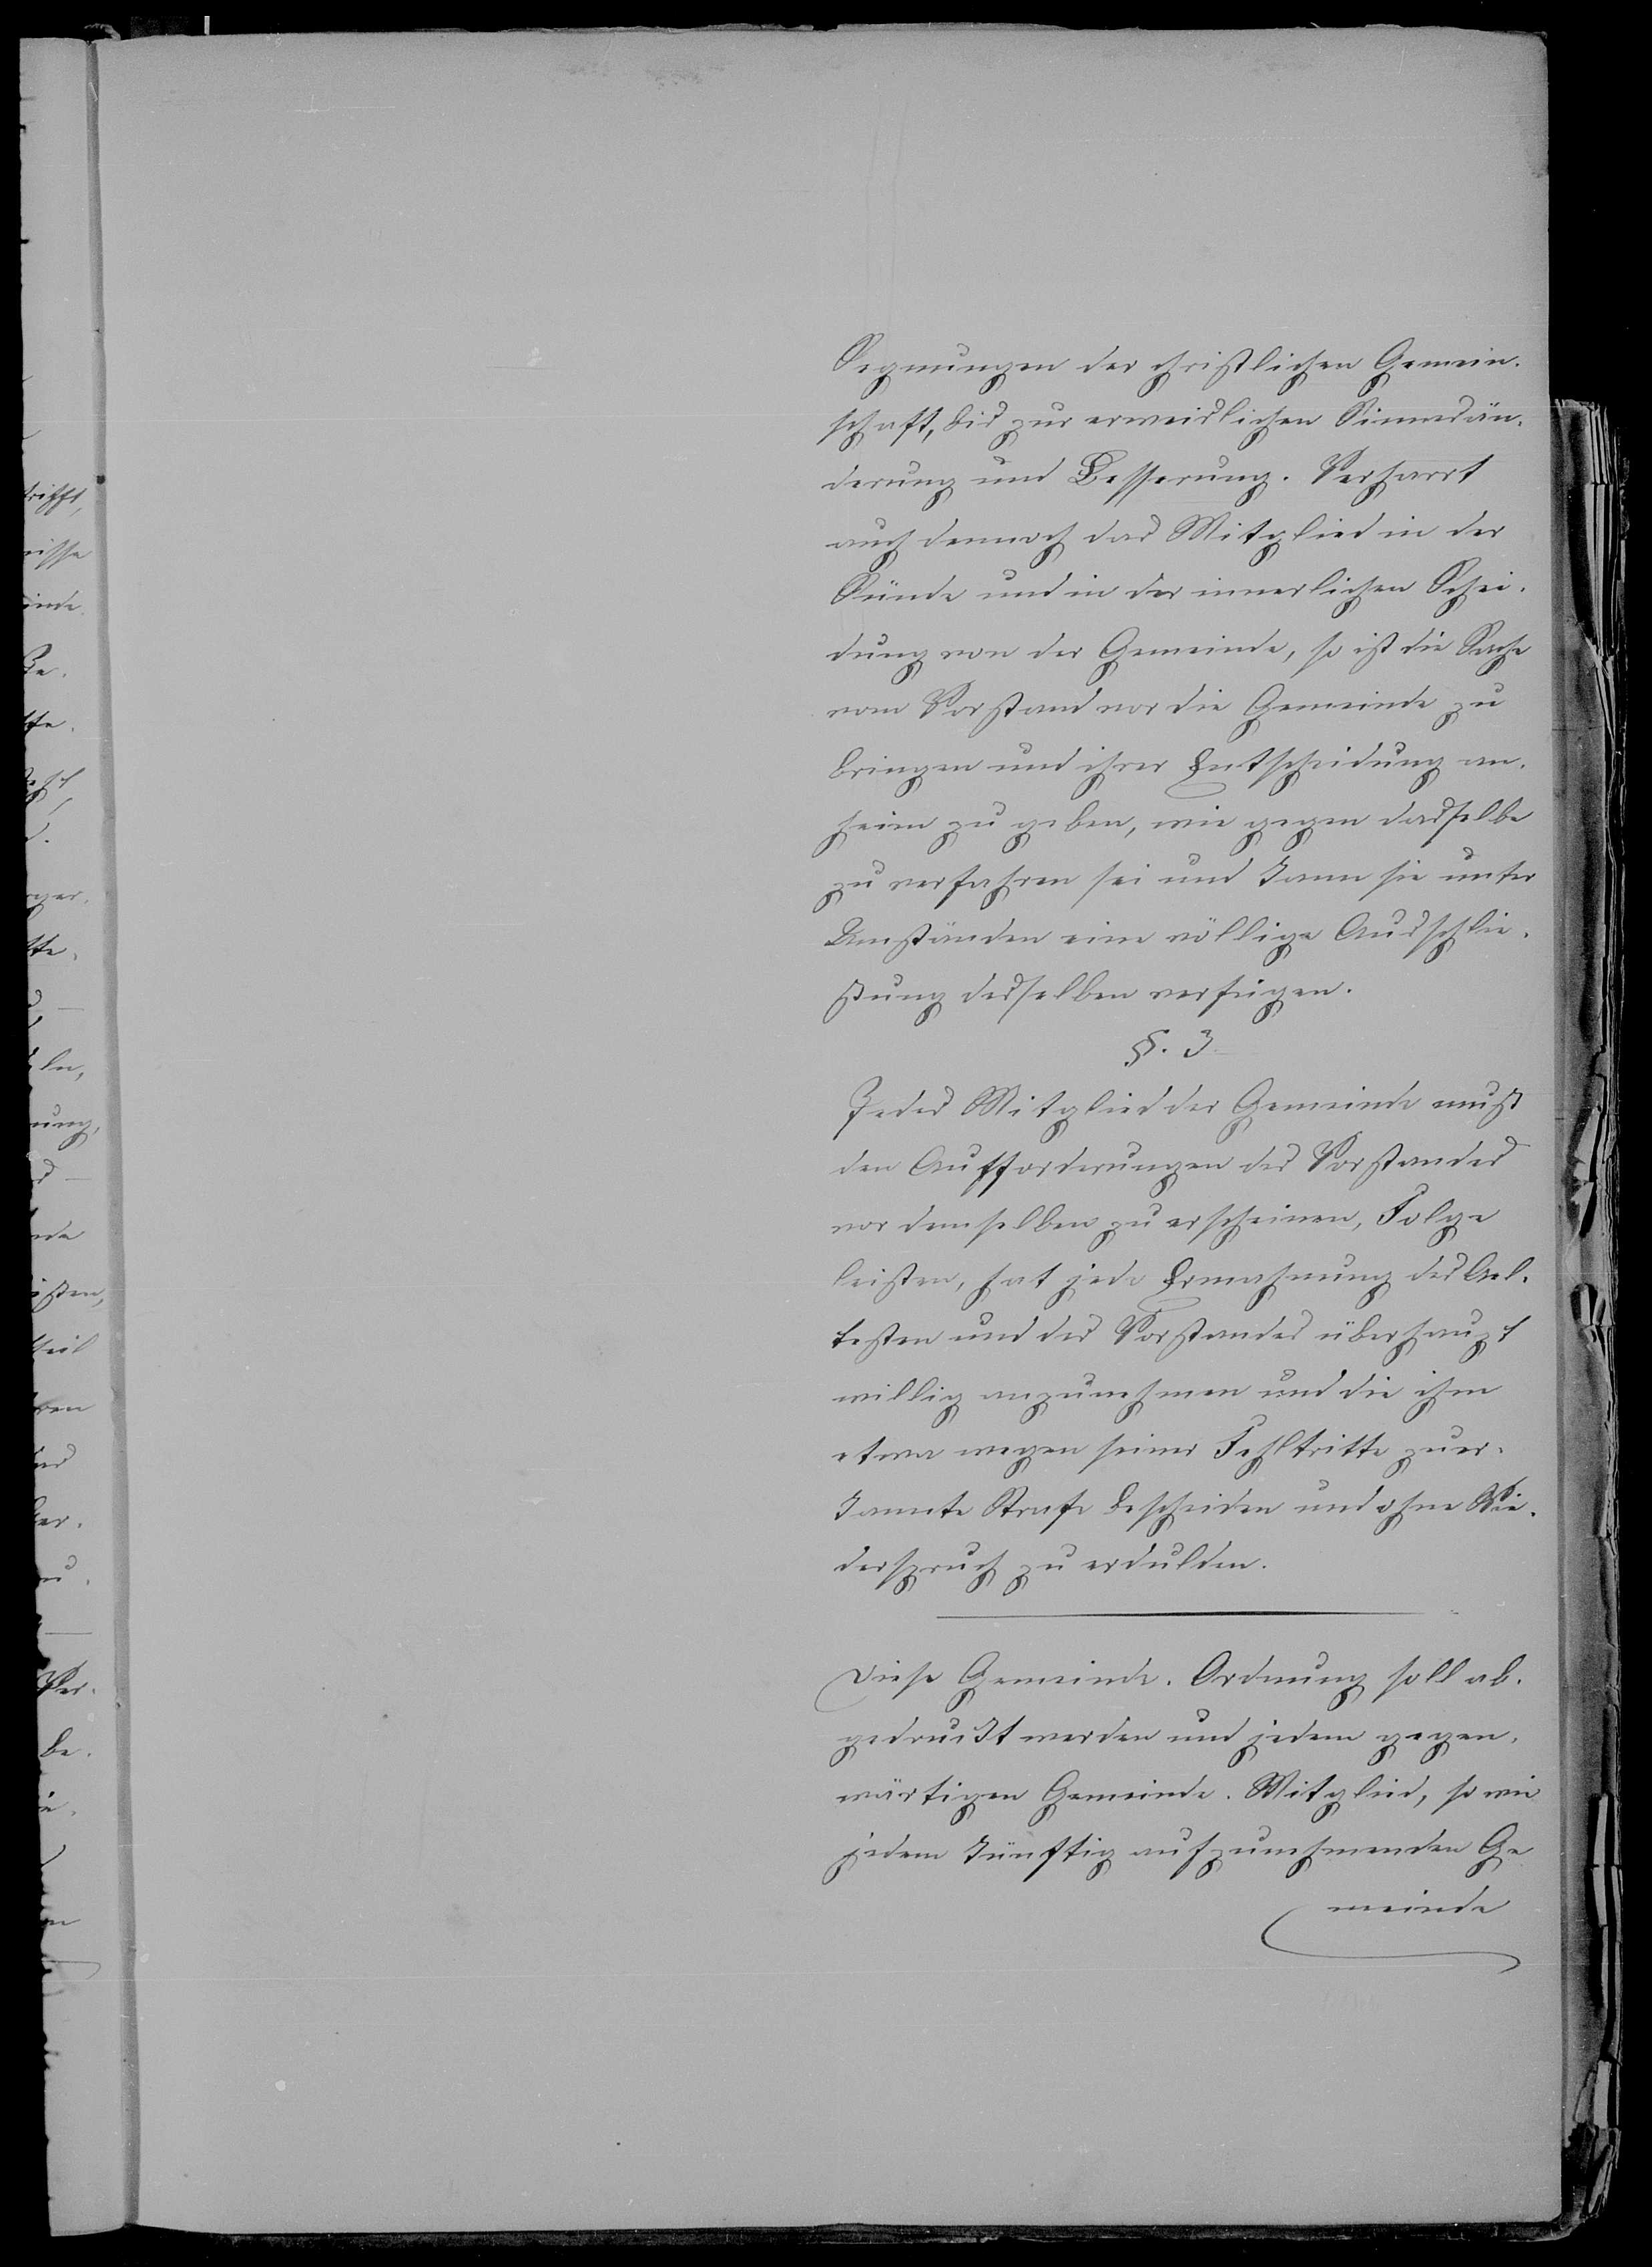 Segnungen der christlichen Gemein-
schaft, bis zur erweislichen Sinnesän-
derung und Besserung. Verharrt
auch dennoch das Mitglied in der
Sünde und in der innerlichen Schei-
dung von der Gemeinde, so ist die Sache
vom Vorstand vor die Gemeinde zu
bringen und ihrer Entscheidung an-
heim zu geben, wie gegen dasselbe
zu verfahren sei und kann sie unter
Umständen eine völlige Ausschlie-
ßung desselben verfügen.
§. 3
Jedes Mitglied der Gemeinde muß
den Aufforderungen des Vorstandes
vor demselben zu erscheinen, Folge
leisten, hat jede Ermahnung des Ael-
testen und des Vorstandes überhaupt
willig anzunehmen und die ihm
etwa wegen seiner Fehltritte zuer-
kannte Strafe bescheiden und ohne Wie-
derspruch zu erdulden.
Diese Gemeinde-Ordnung soll ab-
gedruckt werden und jedem gegen-
wärtigen Gemeinde-Mitglied, so wie
jedem künftig aufzunehmenden Ge
meinde